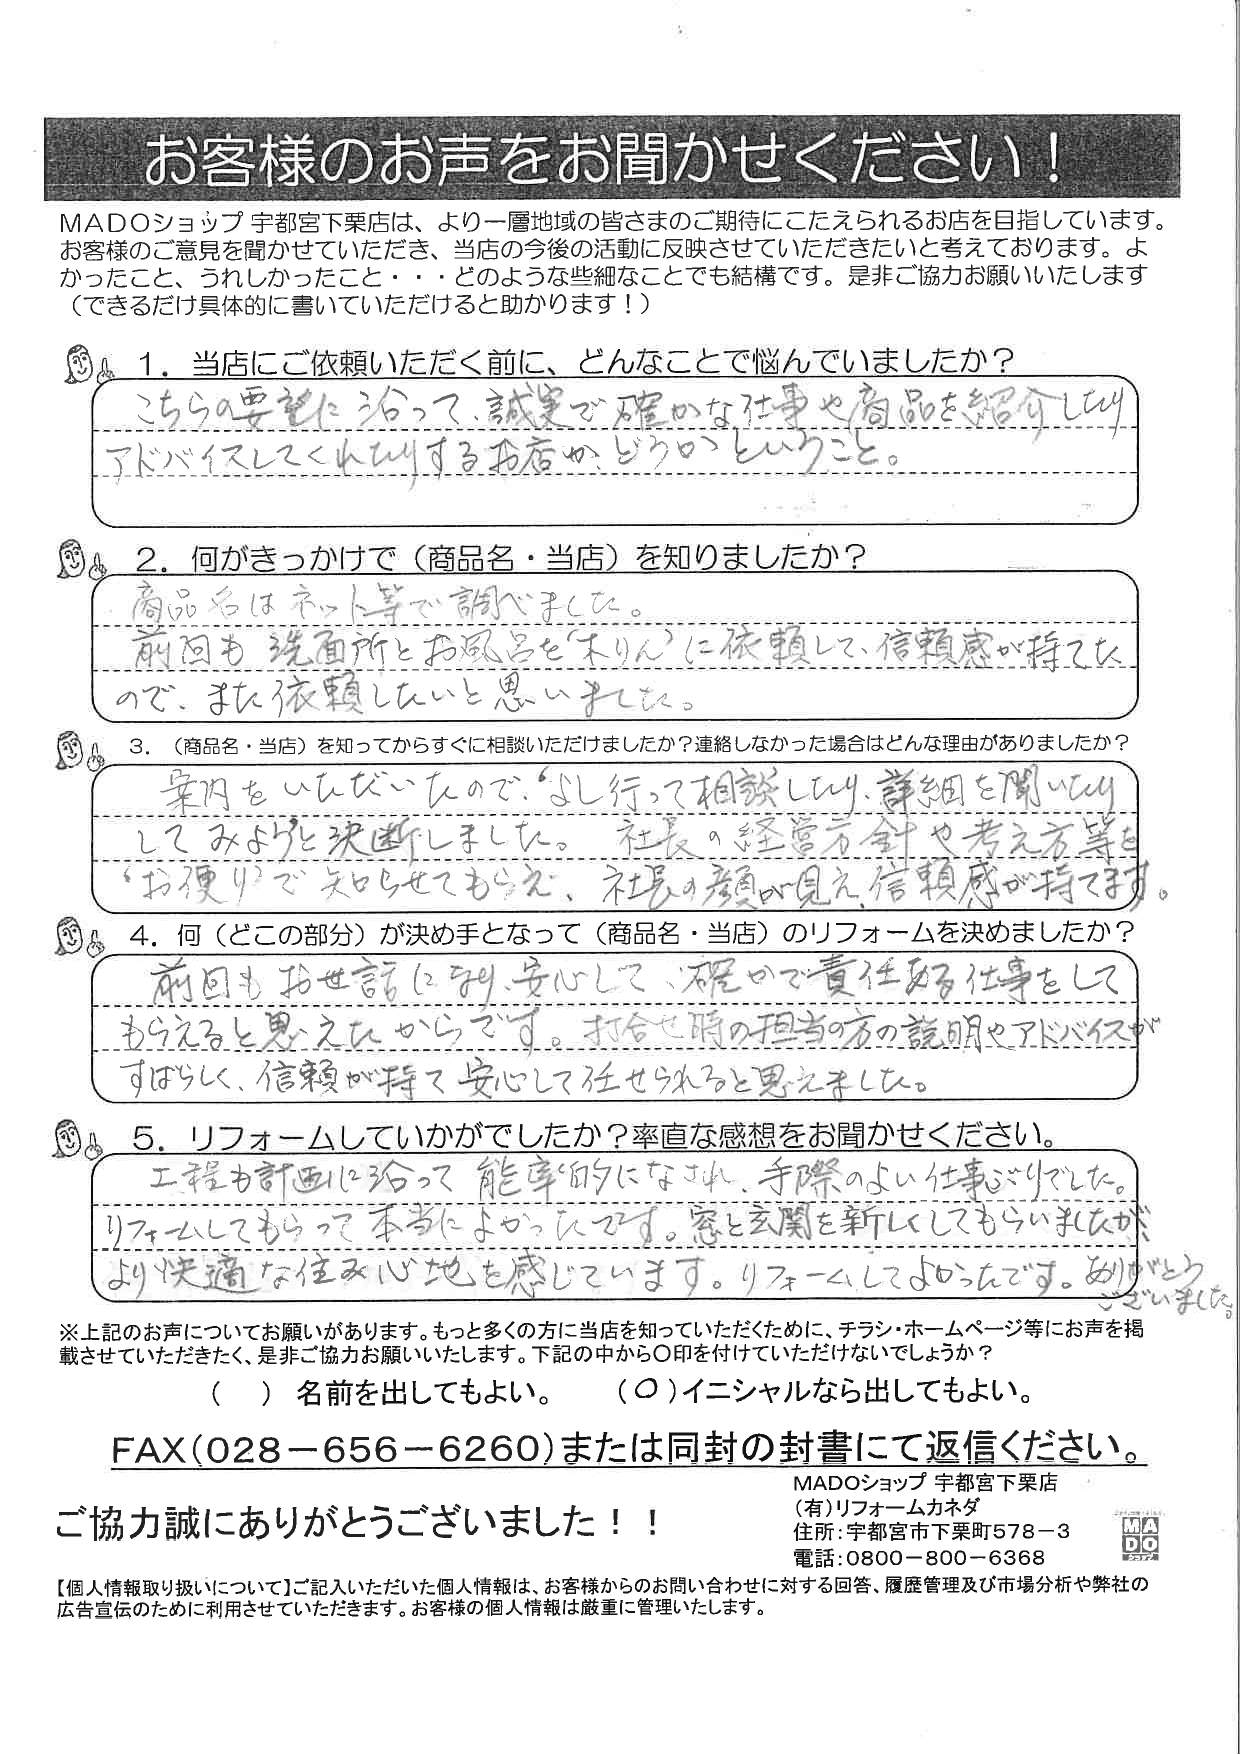 お客様のお声をお聞かせください！
MADOショップ 宇都宮下栗店は、より一層地域の皆さまのご期待にこたえられるお店を目指しています。
お客様のご意見を聞かせていただき、当店の今後の活動に反映させていただきたいと考えております。よ
かったこと、うれしかったこと・・・どのような些細なことでも結構です。是非ご協力お願いいたします
（できるだけ具体的に書いていただけると助かります！）
１．当店にご依頼いただく前に、どんなことで悩んでいましたか？
こちらの要望に沿って、誠実で確かな仕事や商品を紹介したり
アドバイスしてくれたりするお店か、どうかということ。
２．何がきっかけで（商品名・当店）を知りましたか？
商品名はネット等で調べました。
前回も洗面所とお風呂を“木りん”に依頼して、信頼感が持てた
ので、また依頼したいと思いました。
３．（商品名・当店）を知ってからすぐに相談いただけましたか？連絡しなかった場合はどんな理由がありましたか？
案内をいただいたので、‘よし行って相談したり、詳細を聞いたり
してみよう’と決断しました。社長の経営方針や考え方等を
‘お便り’で知らせてもらえ、社長の顔が見え、信頼感が持てます。
４．何（どこの部分）が決め手となって（商品名・当店）のリフォームを決めましたか？
前回もお世話になり、安心して、確かで責任ある仕事をして
もらえると思えたからです。打合せ時の担当の方の説明やアドバイスが
すばらしく、信頼が持て安心して任せられると思えました。
５．リフォームしていかがでしたか？率直な感想をお聞かせください。
工程も計画に沿って能率的になされ、手際のよい仕事ぶりでした。
リフォームしてもらって本当によかったです。窓と玄関を新しくしてもらいましたが、
より快適な住み心地を感じています。リフォームしてよかったです。ありがとう
ございました。
※上記のお声についてお願いがあります。もっと多くの方に当店を知っていただくために、チラシ・ホームページ等にお声を掲
載させていただきたく、是非ご協力お願いいたします。下記の中から〇印を付けていただけないでしょうか？
（　）名前を出してもよい。　（〇）イニシャルなら出してもよい。
FAX（028－656－6260）または同封の封書にて返信ください。
MADOショップ 宇都宮下栗店
（有）リフォームカネダ
ご協力誠にありがとうございました！！
住所：宇都宮市下栗町578－3
電話：0800－800－6368
MADO
ショップ
【個人情報取り扱いについて】ご記入いただいた個人情報は、お客様からのお問い合わせに対する回答、履歴管理及び市場分析や弊社の
広告宣伝のために利用させていただきます。お客様の個人情報は厳重に管理いたします。